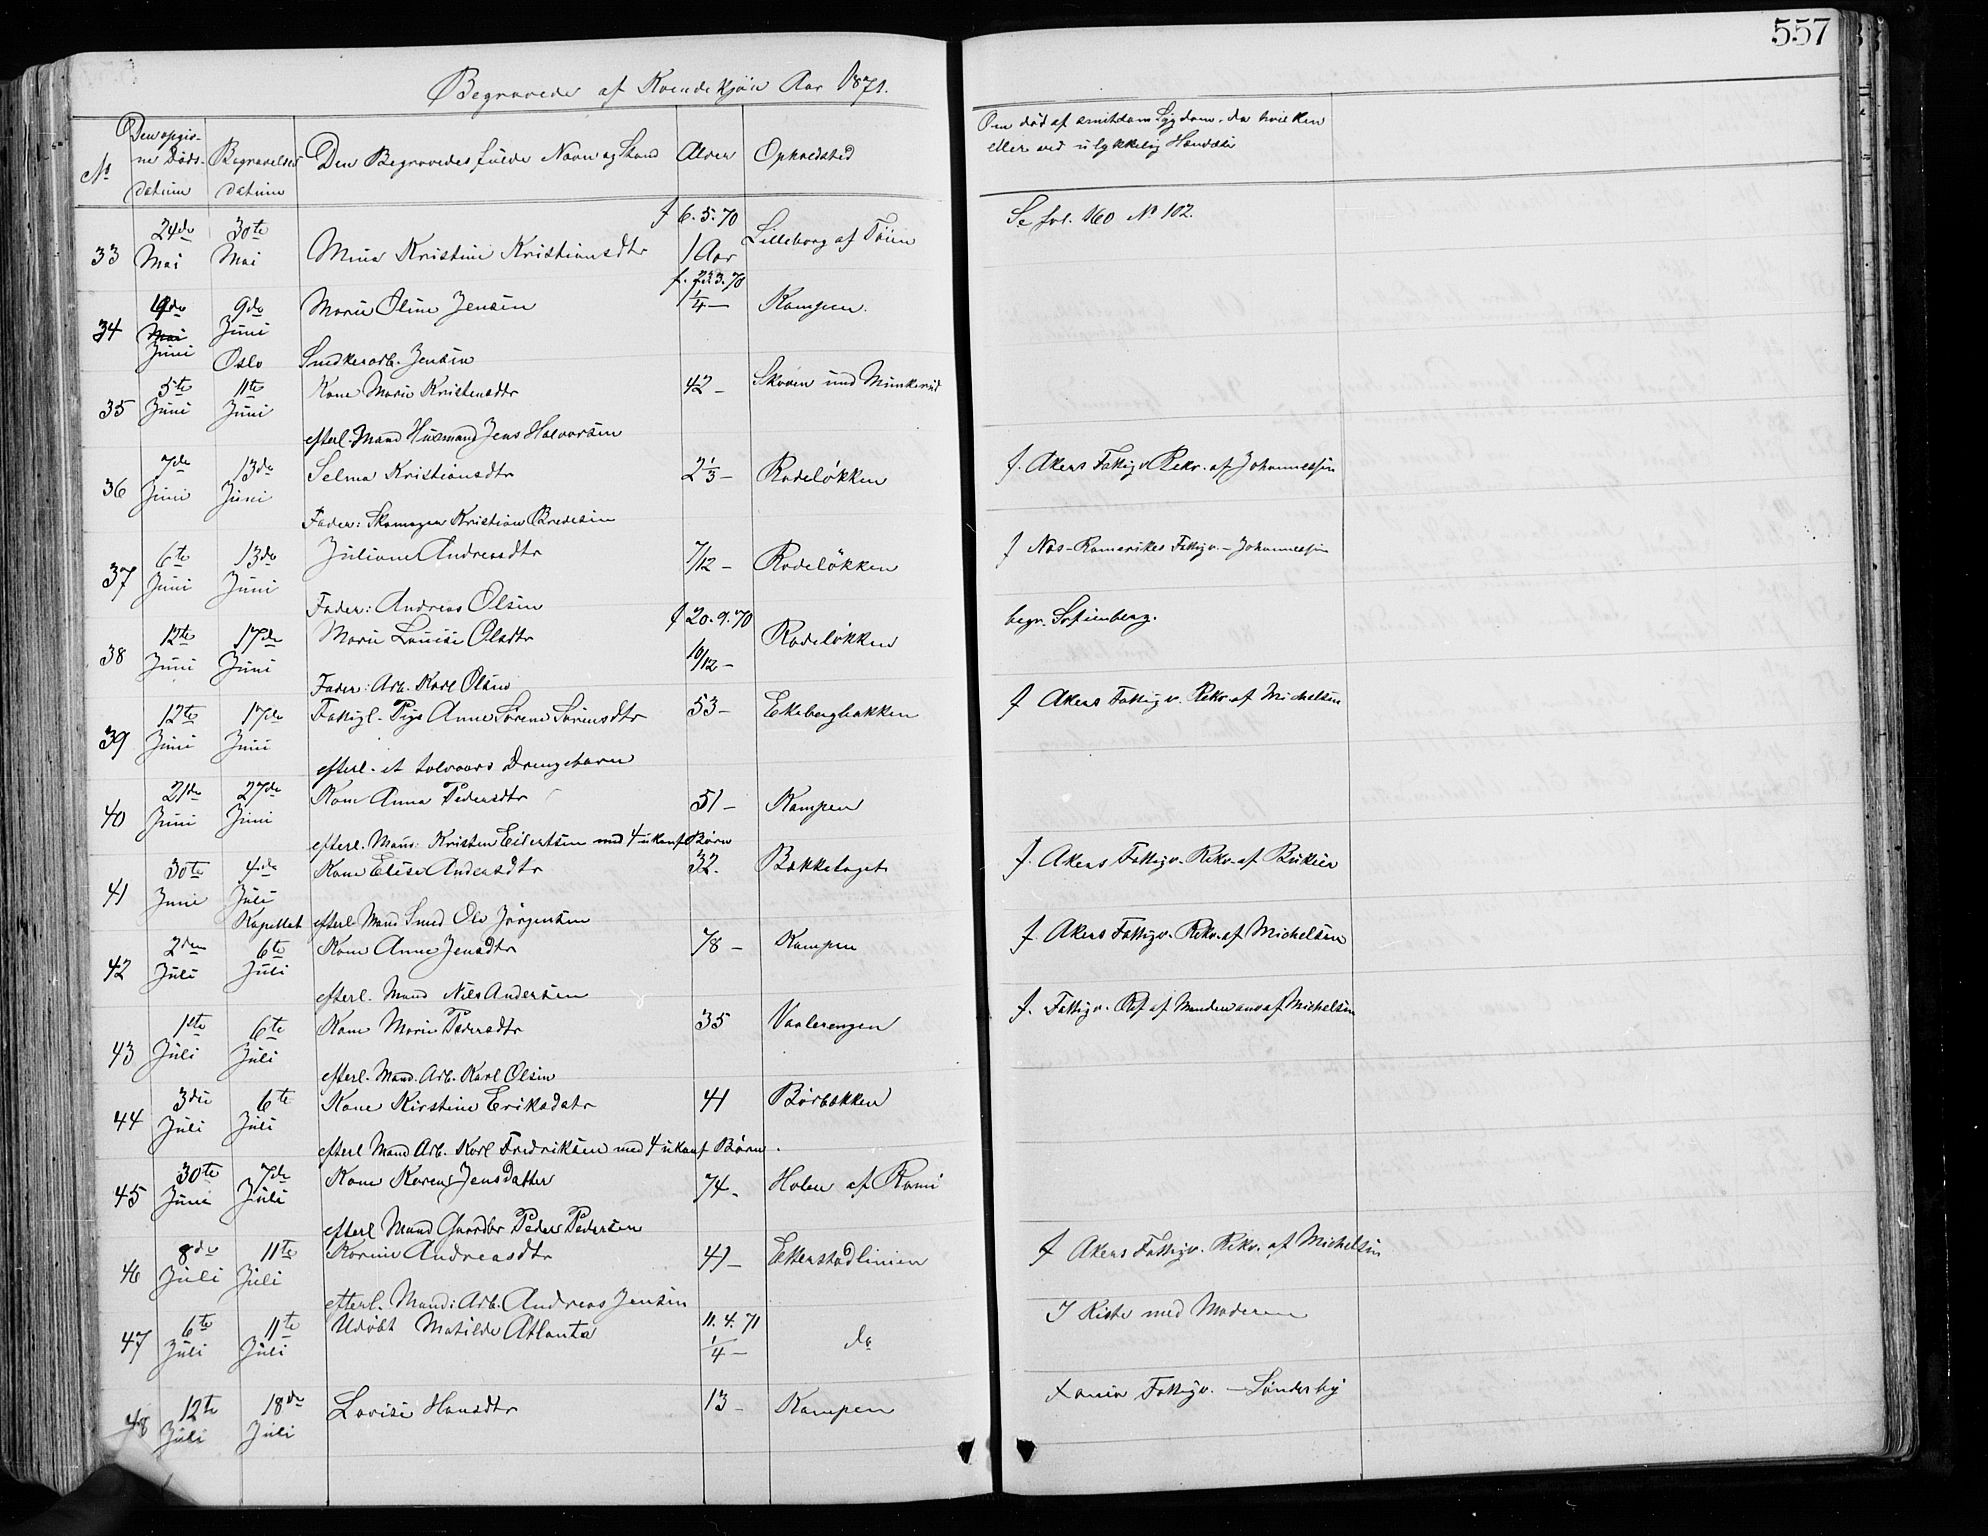 557
Begravede af Kvindekjön Aar 1871.
No
Den opgivne Døds-datum
Begravelses datum
Den Begravedes fulde Navn og Stand
Alder
Opholdsted
Om død af smitsom Sygdom, da hvilken
eller ved ulykkelig Hændelse
33 24de Mai 30te Mai Mina Kristine Kristiansdtr f 6.5.70 1 Aar Lilleborg af Töien Se fol. 160 No 102.
34 Mai Juni 9de Juni Marie Oline Jensen f. 3.70 1/4 — Kampen.
Oslo Snedkerarb. Jensen
35 5te Juni 11te Juni Kone Marie Kristensdtr 42 — Skoien und Munkerud
efterl. Mand Husmand Jens Halvorsen
36 7de Juni 13de Juni Selma Kristiansdtr 2 1/3 — Rodeløkken f. Akers Fattigv. Rekv. af Johannessen
Fader: Skomager Kristian Bredesen
37 6te Juni 13de Juni Juliane Andreasdtr 7/12 — Rodeløkken f Nes-Romerikes Fattigv. — Johannessen
Fader: Andreas Olsen
38 12te Juni 17de Juni Marie Louise Olsdtr f 20.9.70 10/12 — Rodeløkken begr. Sofienberg.
Fader: Arb. Karl Olsen
39 12te Juni 17de Juni Fattigl. Pige Anne Sörene Sörensdtr 53 — Ekebergbakken f Akers Fattigv. Rekv. af Michelsen
efterl. et tolvaars Drengebarn
40 21de Juni 27de Juni Kone Anna Pedersdtr 51 — Kampen
efterl. Mand: Kristen Eilertsen med 4 ukonf Börn
41 30te Juni 4de Juli Kone Elise Andersdtr 32. Bækkelaget f. Akers Fattigv. Rekv. af
Kapellet efterl. Mand Smed Ole Jörgensen
42 2den Juli 6te Juli Kone Anne Jensdtr 78 — Kampen f. Akers Fattigv. Rekv. af Michelsen
efterl. Mand Nils Andersen
43 1ste Juli 6te Juli Kone Marie Pedersdtr 35 Vaalerengen f. Fattigv. af Manden af Michelsen
efterl. Mand. Arb. Karl Olsen
44 3die Juli 6te Juli Kone Kirstine Eriksdatr 41 Börbakken
efterl Mand Arb. Karl Fredriksen med 4 ukonf Börn.
45 30te Juni 7de Juli Kone Karen Jensdatter 74 — Holen af
efterl Mand Gaardbr Peder Pedersen
46 8de Juli 11te Juli Korine Andreasdtr 41 — Ekerstadlinien f Akers Fattigv. Rekv. af Michelsen
efterl. Mand: Arb. Andreas Jensen
47 6te Juli 11te Juli Udöbt Matilde Atlanta 11.4.71 1/4 — do I Kiste med Moderen
48 12te Juli 18de Juli Lovise Hansdtr 13 — Kampen Xania Fattigv. — Sönderby